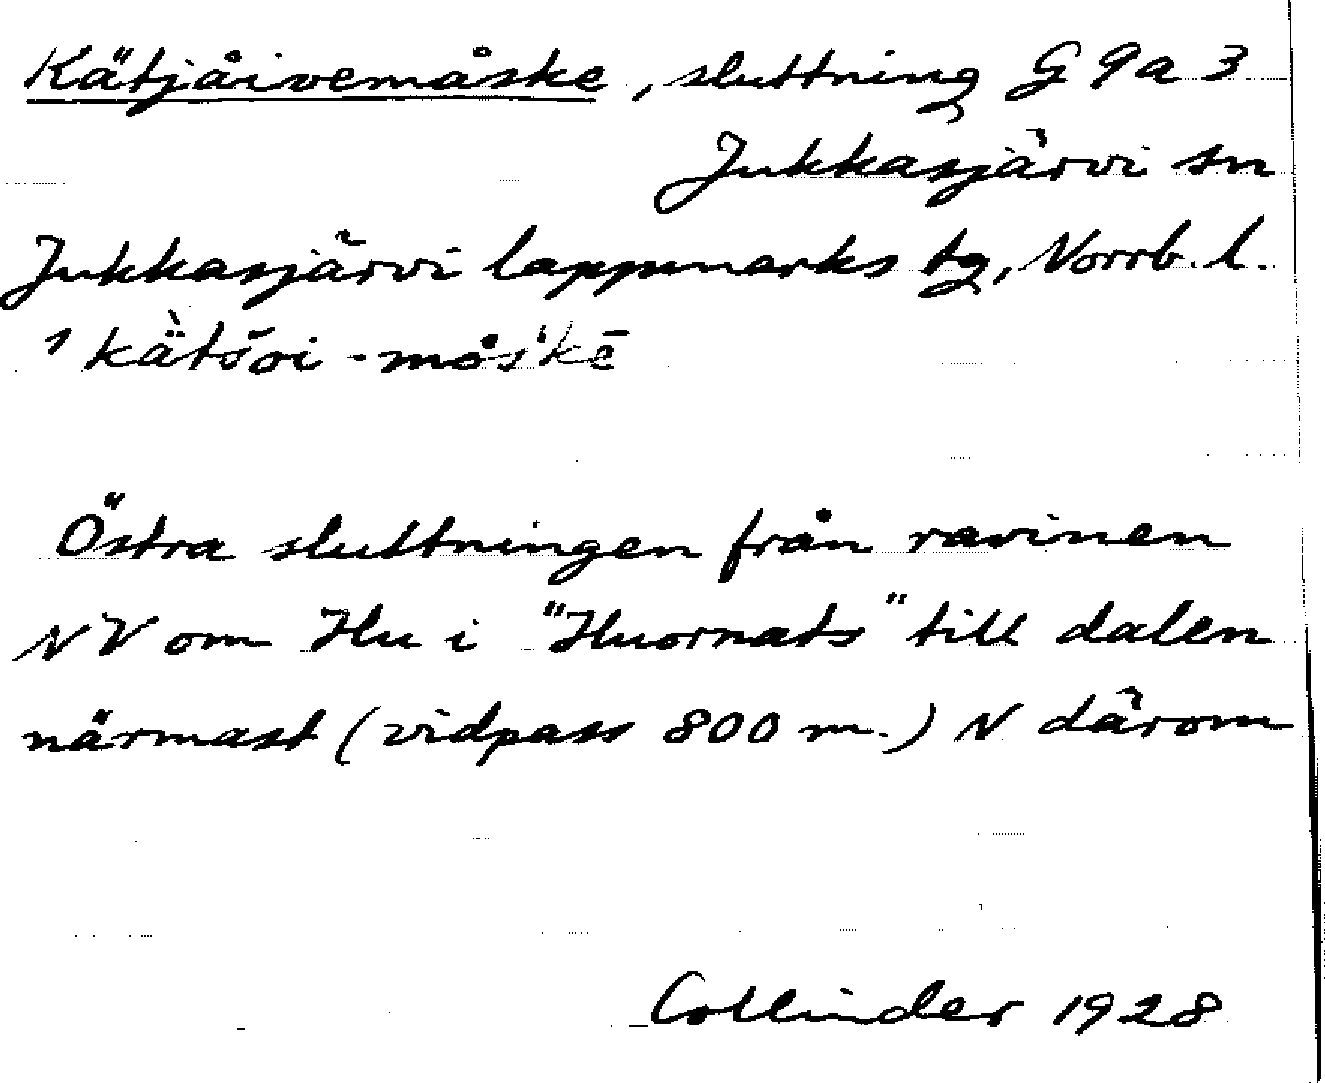 Kätjåivemåske, sluttning G 9a 3
Jukkasjärvi sn
Jukkasjärvi lappmarks tg, Norrb. l.
¹ kä̀tšoi-må̄s'kē
Östra sluttningen från ravinen
NV om Hu i "Huornats" till dalen
närmast (vidpass 800 m.) N därom
Collinder 1928